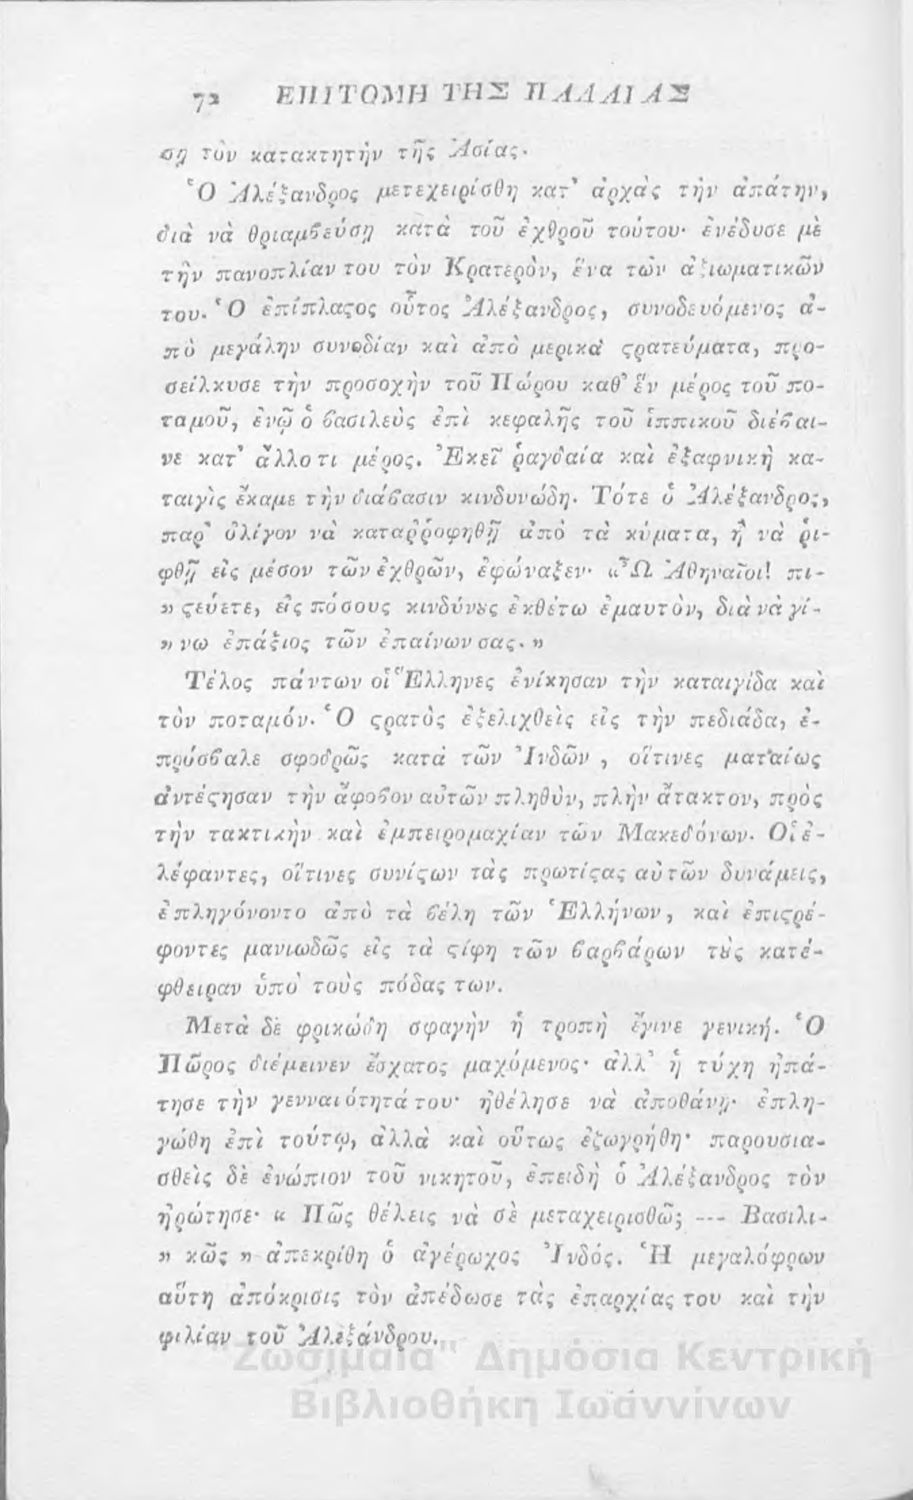 72 ΕΠΙΤΟΜΗ ΤΗΣ ΠΑΛΑΙΑΣ
ση τὸν κατακτητὴν τῆς Ἀσίας.
Ὁ Ἀλέξανδρος μετεχειρίσθη κατ᾽ ἀρχὰς τὴν ἀπάτην,
διὰ νὰ θριαμϐεύσῃ κατὰ τοῦ ἐχθροῦ τούτου· ἐνέδυσε μὲ
τὴν πανοπλίαν του τὸν Κρατερὸν, ἕνα τῶν ἀξιωματικῶν
του. Ὁ ἐπίπλαϛος οὗτος Ἀλέξανδρος, συνοδευόμενος ἀ-
πὸ μεγάλην συνοδίαν καὶ ἀπὸ μερικὰ ϛρατεύματα, προ-
σείλκυσε τὴν προσοχὴν τοῦ Πώρου καθ᾽ ἓν μέρος τοῦ πο-
ταμοῦ, ἐνῷ ὁ ϐασιλεὺς ἐπὶ κεφαλῆς τοῦ ἱππικοῦ διέϐαι-
νε κατ᾽ ἄλλο τι μέρος. Ἐκεῖ ῥαγδαία καὶ ἐξαφνικὴ κα-
ταιγὶς ἔκαμε τὴν διάϐασιν κινδυνώδη. Τότε ὁ Ἀλέξανδρος,
παρ᾽ ὀλίγον νὰ καταῤῥοφηθῇ ἀπὸ τὰ κύματα, ἢ νὰ ῥι-
φθῇ εἰς μέσον τῶν ἐχθρῶν, ἐφώναξεν· «Ὦ Ἀθηναῖοι! πι-
» ϛεύετε, εἰς πόσους κινδύνȣς ἐκθέτω ἐμαυτὸν, διὰ νὰ γί-
» νω ἐπάξιος τῶν ἐπαίνων σας. »
Τέλος πάντων οἱ Ἕλληνες ἐνίκησαν τὴν καταιγίδα καὶ
τὸν ποταμόν. Ὁ ϛρατὸς ἐξελιχθεὶς εἰς τὴν πεδιάδα, ἐ-
πρόσϐαλε σφοδρῶς κατὰ τῶν Ἰνδῶν , οἵτινες ματαίως
ἀντέϛησαν τὴν ἄφοϐον αὐτῶν πληθὺν, πλὴν ἄτακτον, πρὸς
τὴν τακτικὴν καὶ ἐμπειρομαχίαν τῶν Μακεδόνων. Οἱ ἐ-
λέφαντες, οἵτινες συνίϛων τὰς πρωτίϛας αὐτῶν δυνάμεις,
ἐπληγόνοντο ἀπὸ τὰ ϐέλη τῶν Ἑλλήνων, καὶ ἐπιϛρέ-
φοντες μανιωδῶς εἰς τὰ ϛίφη τῶν ϐαρϐάρων τȣς κατέ-
φθειραν ὑπὸ τοὺς πόδας των.
Μετὰ δὲ φρικώδη σφαγὴν ἡ τροπὴ ἔγινε γενική. Ὁ
Πῶρος διέμεινεν ἔσχατος μαχόμενος· ἀλλ᾽ ἡ τύχη ἠπά-
τησε τὴν γενναιότητά του· ἠθέλησε νὰ ἀποθάνῃ· ἐπλη-
γώθη ἐπὶ τούτῳ, ἀλλὰ καὶ οὕτως ἐζωγρήθη· παρουσια-
σθεὶς δὲ ἐνώπιον τοῦ νικητοῦ, ἐπειδὴ ὁ Ἀλέξανδρος τὸν
ἠρώτησε· « Πῶς θέλεις νὰ σὲ μεταχειρισθῶ; --- Βασιλι-
» κῶς » ἀπεκρίθη ὁ ἀγέρωχος Ἰνδός. Ἡ μεγαλόφρων
αὕτη ἀπόκρισις τὸν ἀπέδωσε τὰς ἐπαρχίας του καὶ τὴν
φιλίαν τοῦ Ἀλεξάνδρου.
"Ζωσιμαία" Δημόσια Κεντρική
Βιβλιοθήκη Ιωάννίνων